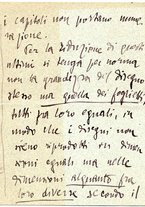 i capitoli non portano nume-
razione.
Per la riduzione di questi
ultimi si tenga per norma
non la grandezza del disegno
stesso ma quella dei foglietti,
tutti fra loro eguali, in
modo che i disegni non
sieno riprodotti in dimen-
sioni eguali ma nelle
dimensioni alquanto fra
loro diverse secondo il